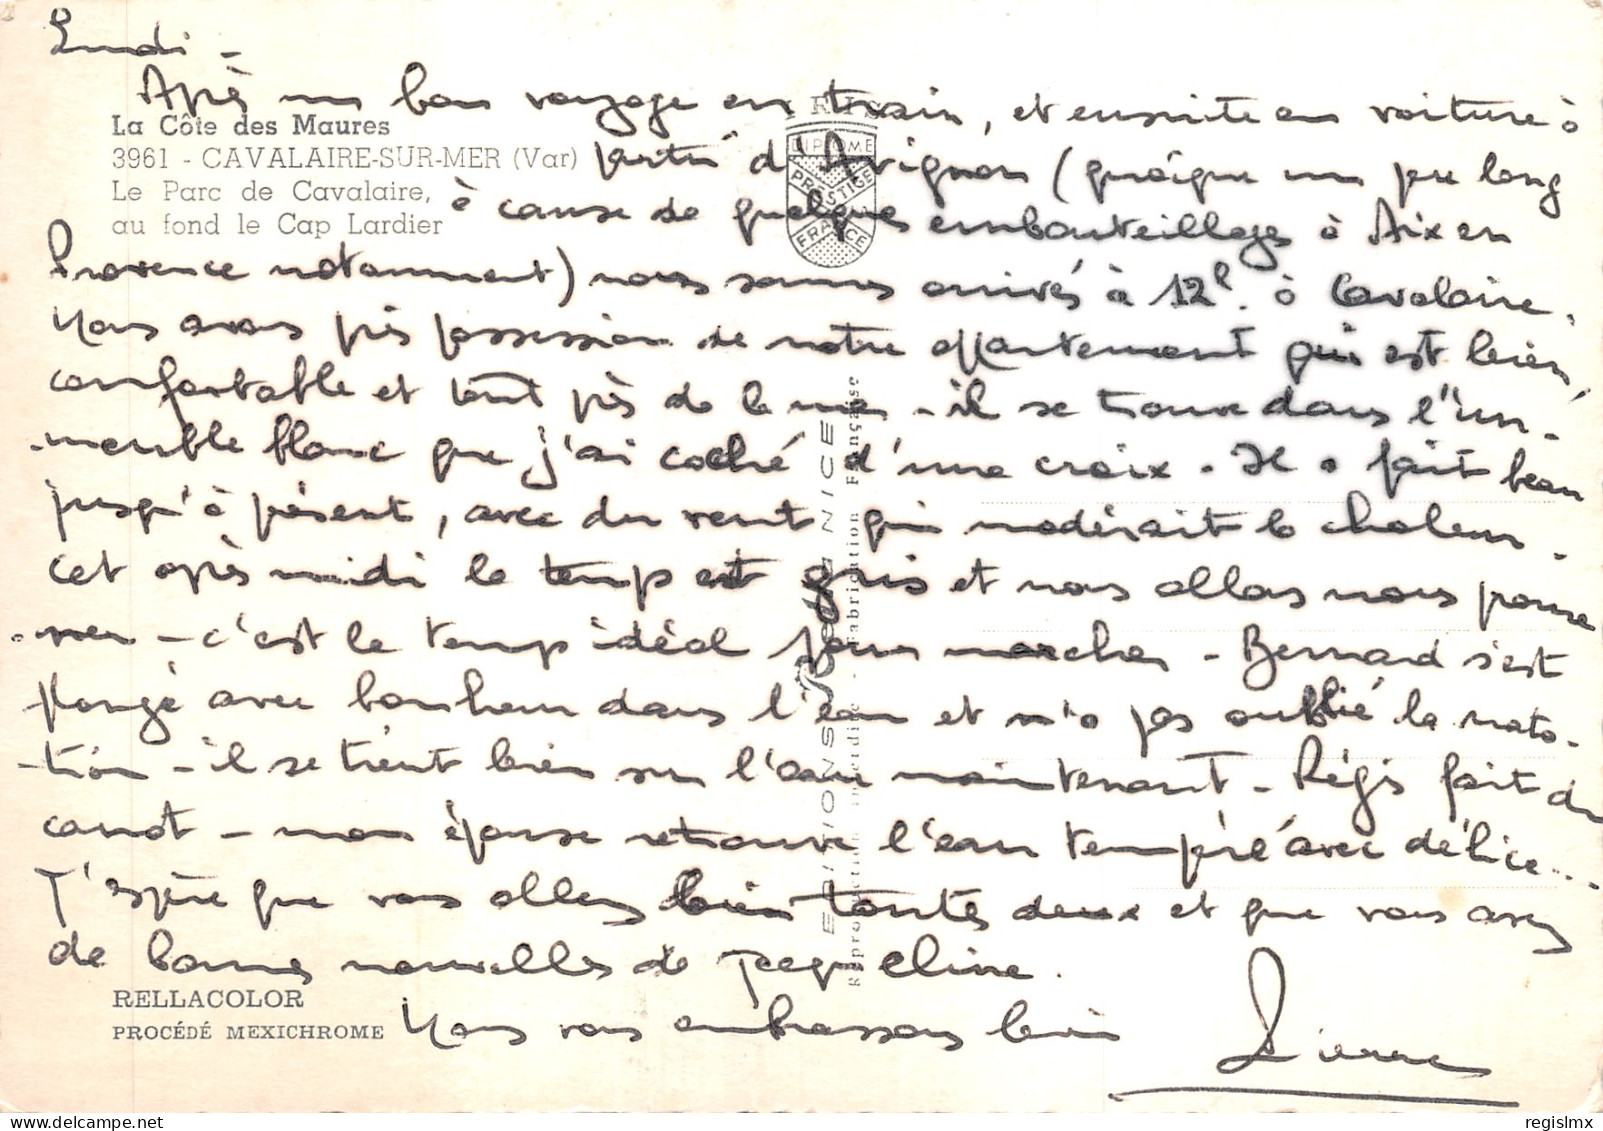 Lundi -
Après un bon voyage en train, et ensuite en voiture à
partir d'Avignon (quoique un peu long
à cause de quelques embouteillages à Aix en
Provence notamment) nous sommes arrivés à 12h. à Cavalaire.
Nous avons pris possession de notre appartement qui est bien
confortable et tout près de la mer - il se trouve dans l'im-
-meuble blanc que j'ai coché d'une croix - Il a fait beau
jusqu'à présent, avec du vent qui modérait la chaleur -
cet après midi le temps est gris et nous allons nous prome
-ner - c'est le temps idéal pour marcher - Bernard s'est
plongé avec bonheur dans l'eau et n'a pas oublié la nata-
-tion - il se tient bien sur l'eau maintenant - Régis fait du
canot - mon épouse retrouve l'eau tempéré avec délice...
J'espère que vous allez bien toutes deux et que vous avez
de bonnes nouvelles de Jacqueline.
Nous vous embrassons bien
Pierre
La Côte des Maures
3961 - CAVALAIRE-SUR-MER (Var)
Le Parc de Cavalaire,
au fond le Cap Lardier
DIPLOME
PRESTIGE
FRANCE
EDITIONS RELLA NICE
Reproduction interdite - Fabrication Française
RELLACOLOR
PROCÉDÉ MEXICHROME
regislmx